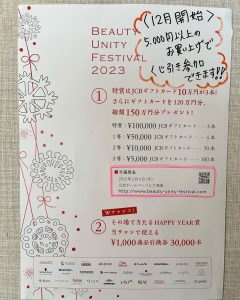 BEAUTY
UNITY
FESTIVAL
2023
<12月開始>
5,000円以上の
お買い上げで
くじ引き参加
できます!!
① 特賞はJCBギフトカード10万円が3本!
さらにギフトカードを120万円分、
総額150万円分プレゼント!
特賞:¥100,000 JCBギフトカード 3本
1等:¥50,000 JCBギフトカード
2等:¥10,000 JCBギフトカード 50本
3等:¥5,000 JCBギフトカード 100本
■当選発表
公式ホームページにて発表
http://www.beauty-unity-festival.com
Wチャンス!
② その場で当たるHAPPY YEAR賞
当サロンで使える
¥1,000商品引換券 30,000本